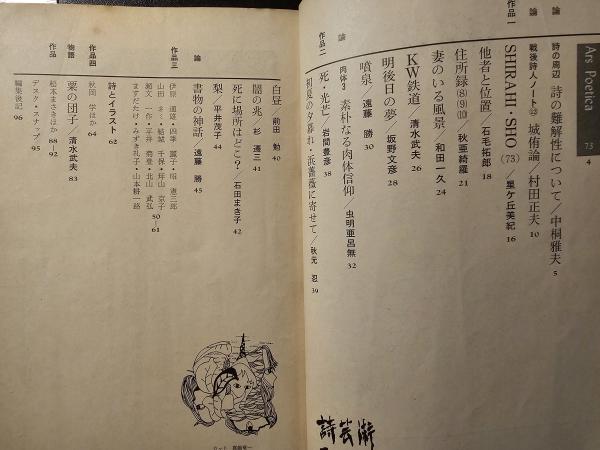 Ars Poetica 73 4
論 詩の周辺 詩の難解性について／中桐雅夫 5
論 戦後詩人ノート㉒ 城侑論／村田正夫 10
作品一 SHIRAHI・SHO (73)／星ケ丘美紀 16
他者と位置／石毛拓郎 18
住所録 (9)(10)／秋亜綺羅 21
妻のいる風景／和田一久 24
KW鉄道／清水武夫 26
明後日の夢／坂野文彦 28
噴泉／遠藤 勝 30
論 肉体3 素朴なる肉体信仰／虫明亜呂無 32
作品二 死・光芒／岩間豊彦 38
初夏の夕暮れ・浜薔薇に寄せて／秋元 忍 39
白昼／前田 勉 40
闇の兆／杉 遷三 41
死に場所はどこ？／石田まき子 42
梨／平井茂子 44
論 書物の神話／遠藤 勝 45
作品三 伊原 道雄・四季 薫子・昭 進三郎
山田 まミ・結城 千保・坪山 京子
一作・平井 商登・北山 武弘
ますだたけ・みずき礼子・山本耕一路
50〜61
詩とイラスト 62
作品四 秋岡 学ほか 64
物語 粟の団子／清水武夫 83
作品 松本まさきほか 88〜92
デスク・スナップ 95
編集後記 96
詩芸術
カット